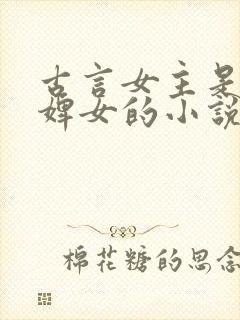 古言女主是
婢女的小説
棉花糖的思念